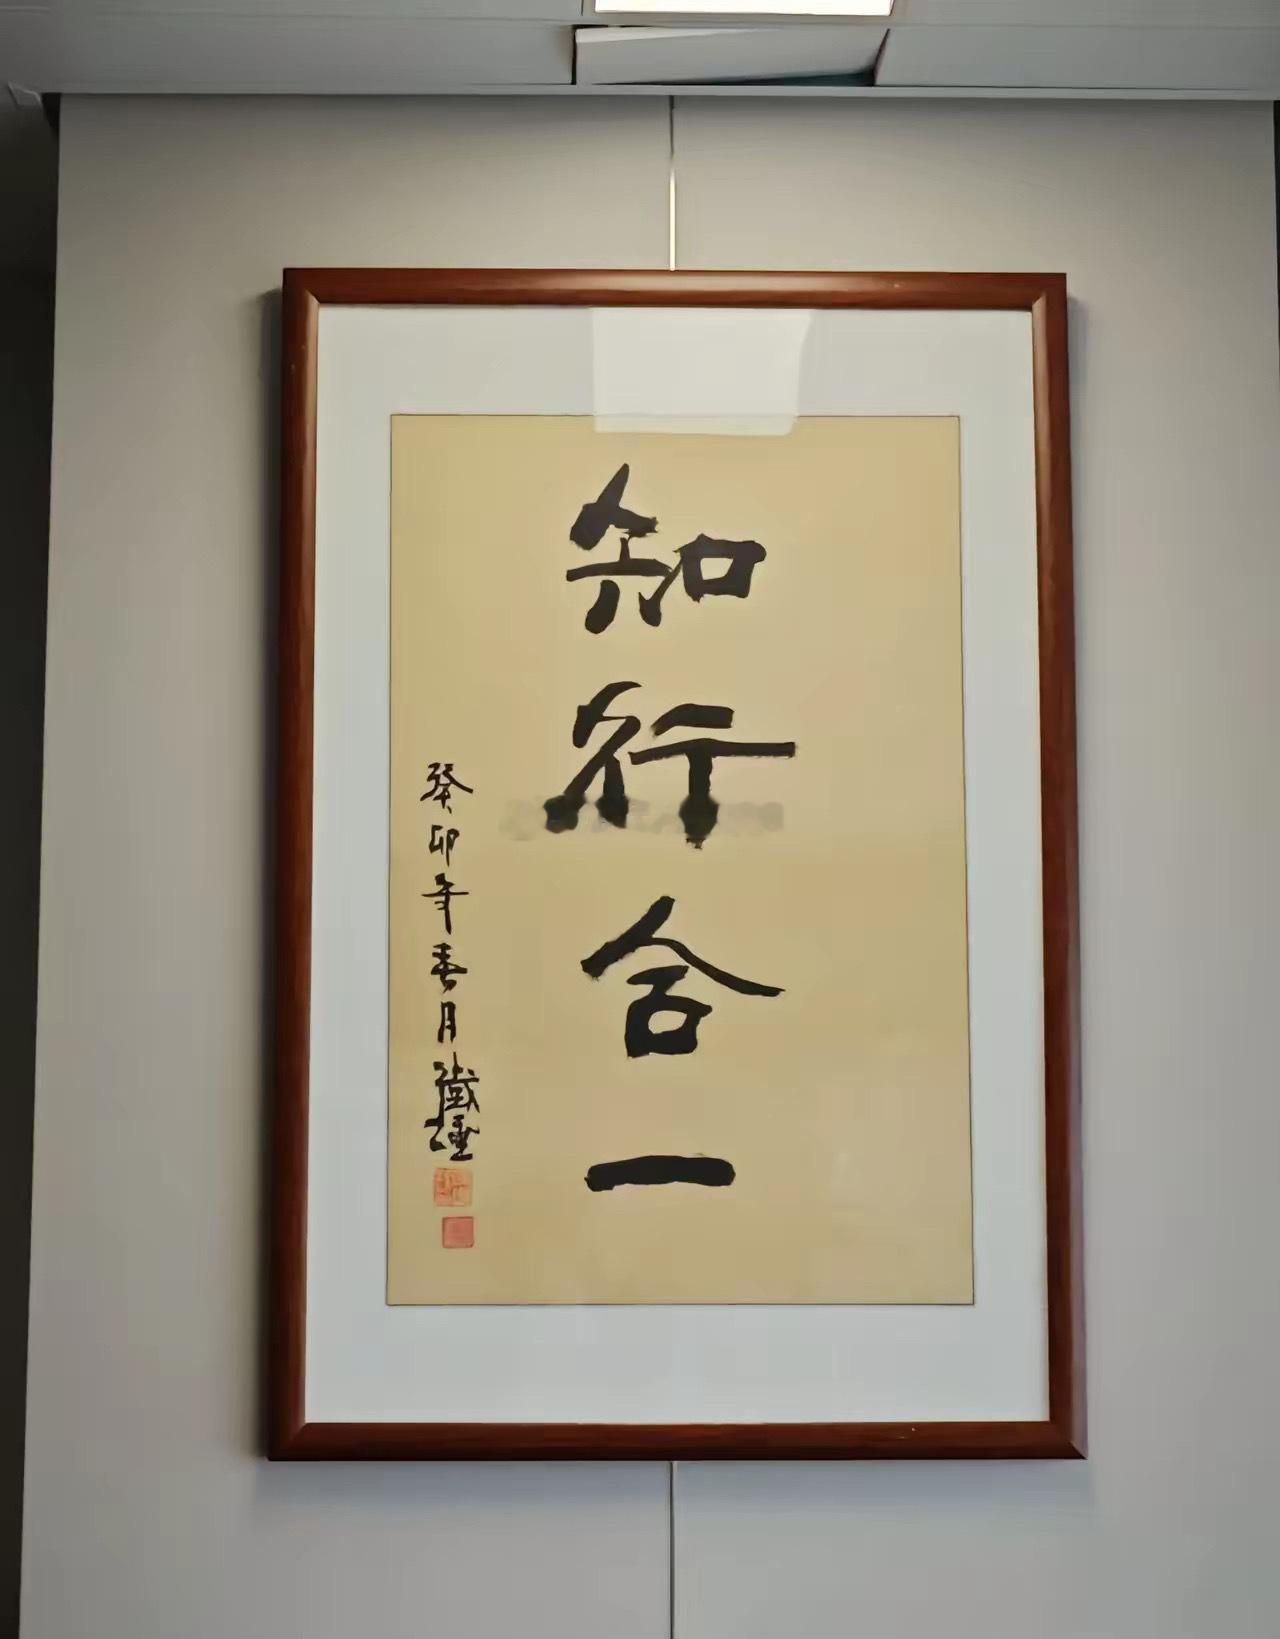 知行合一
癸卯年春月